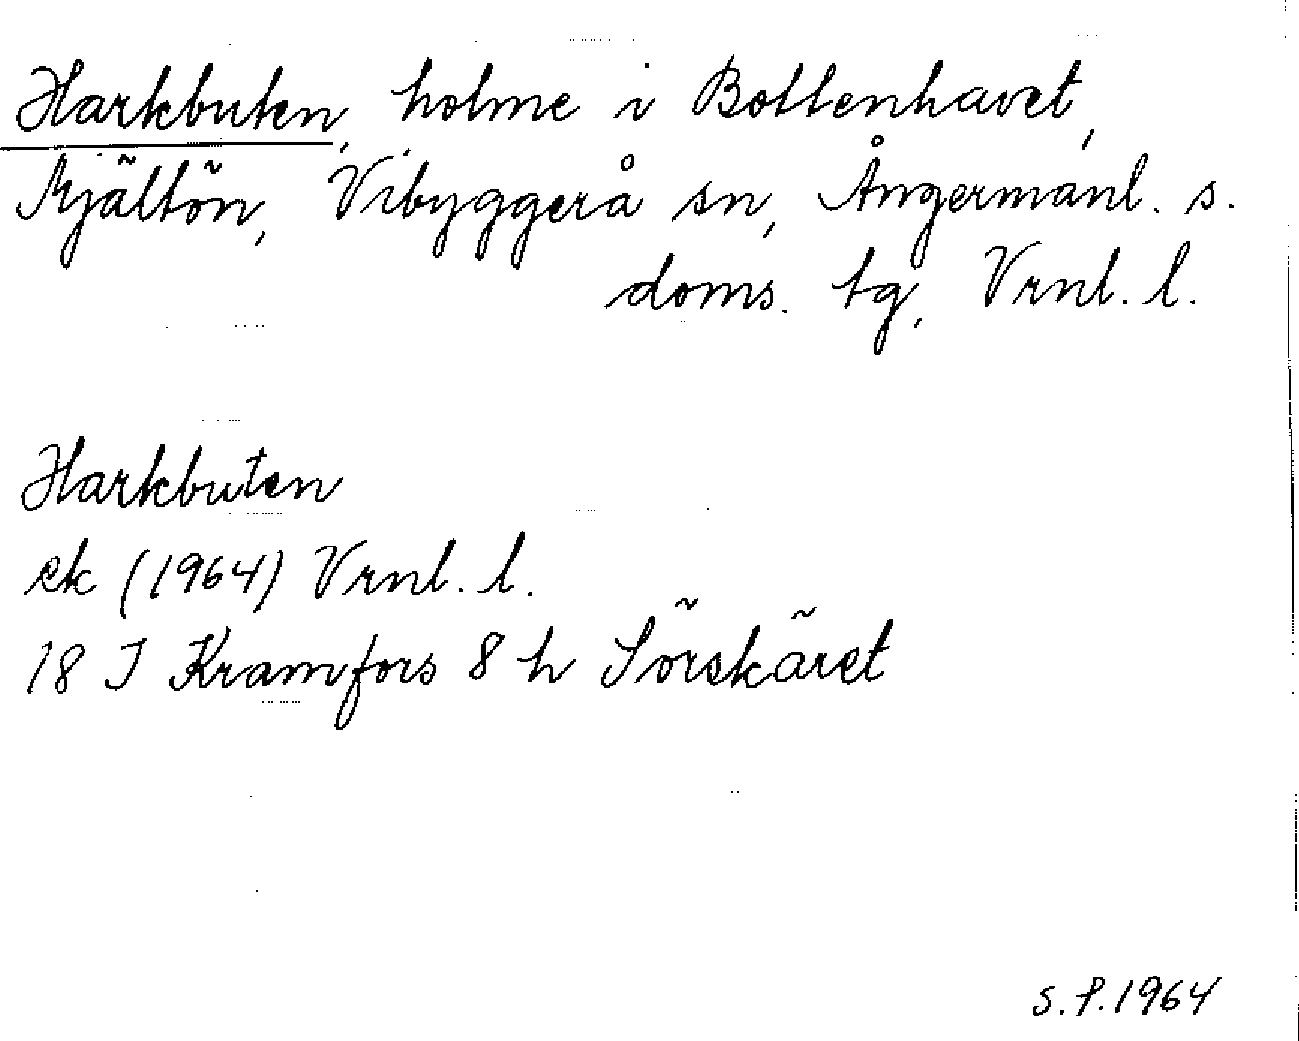 Harkbuten, holme i Bottenhavet,
Mjältön, Vibyggerå sn, Ångermanl. s.
doms. tg, Vrnl. l.
Harkbuten
ek (1964) Vrnl. l.
18 I Kramfors 8 h Sörskäret
S.P.1964